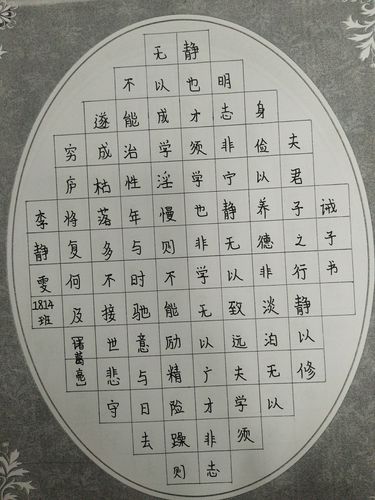 诫子书
夫君子之行静以修
身俭以养德非淡泊无以
明志非宁静无以致远夫学须
静也才须学也非学无以广才非志
无以成学淫慢则不能励精险躁则
不能治性年与时驰意与日去
遂成枯落多不接世悲守
穷庐将复何及[诸葛亮]
李静雯1814班